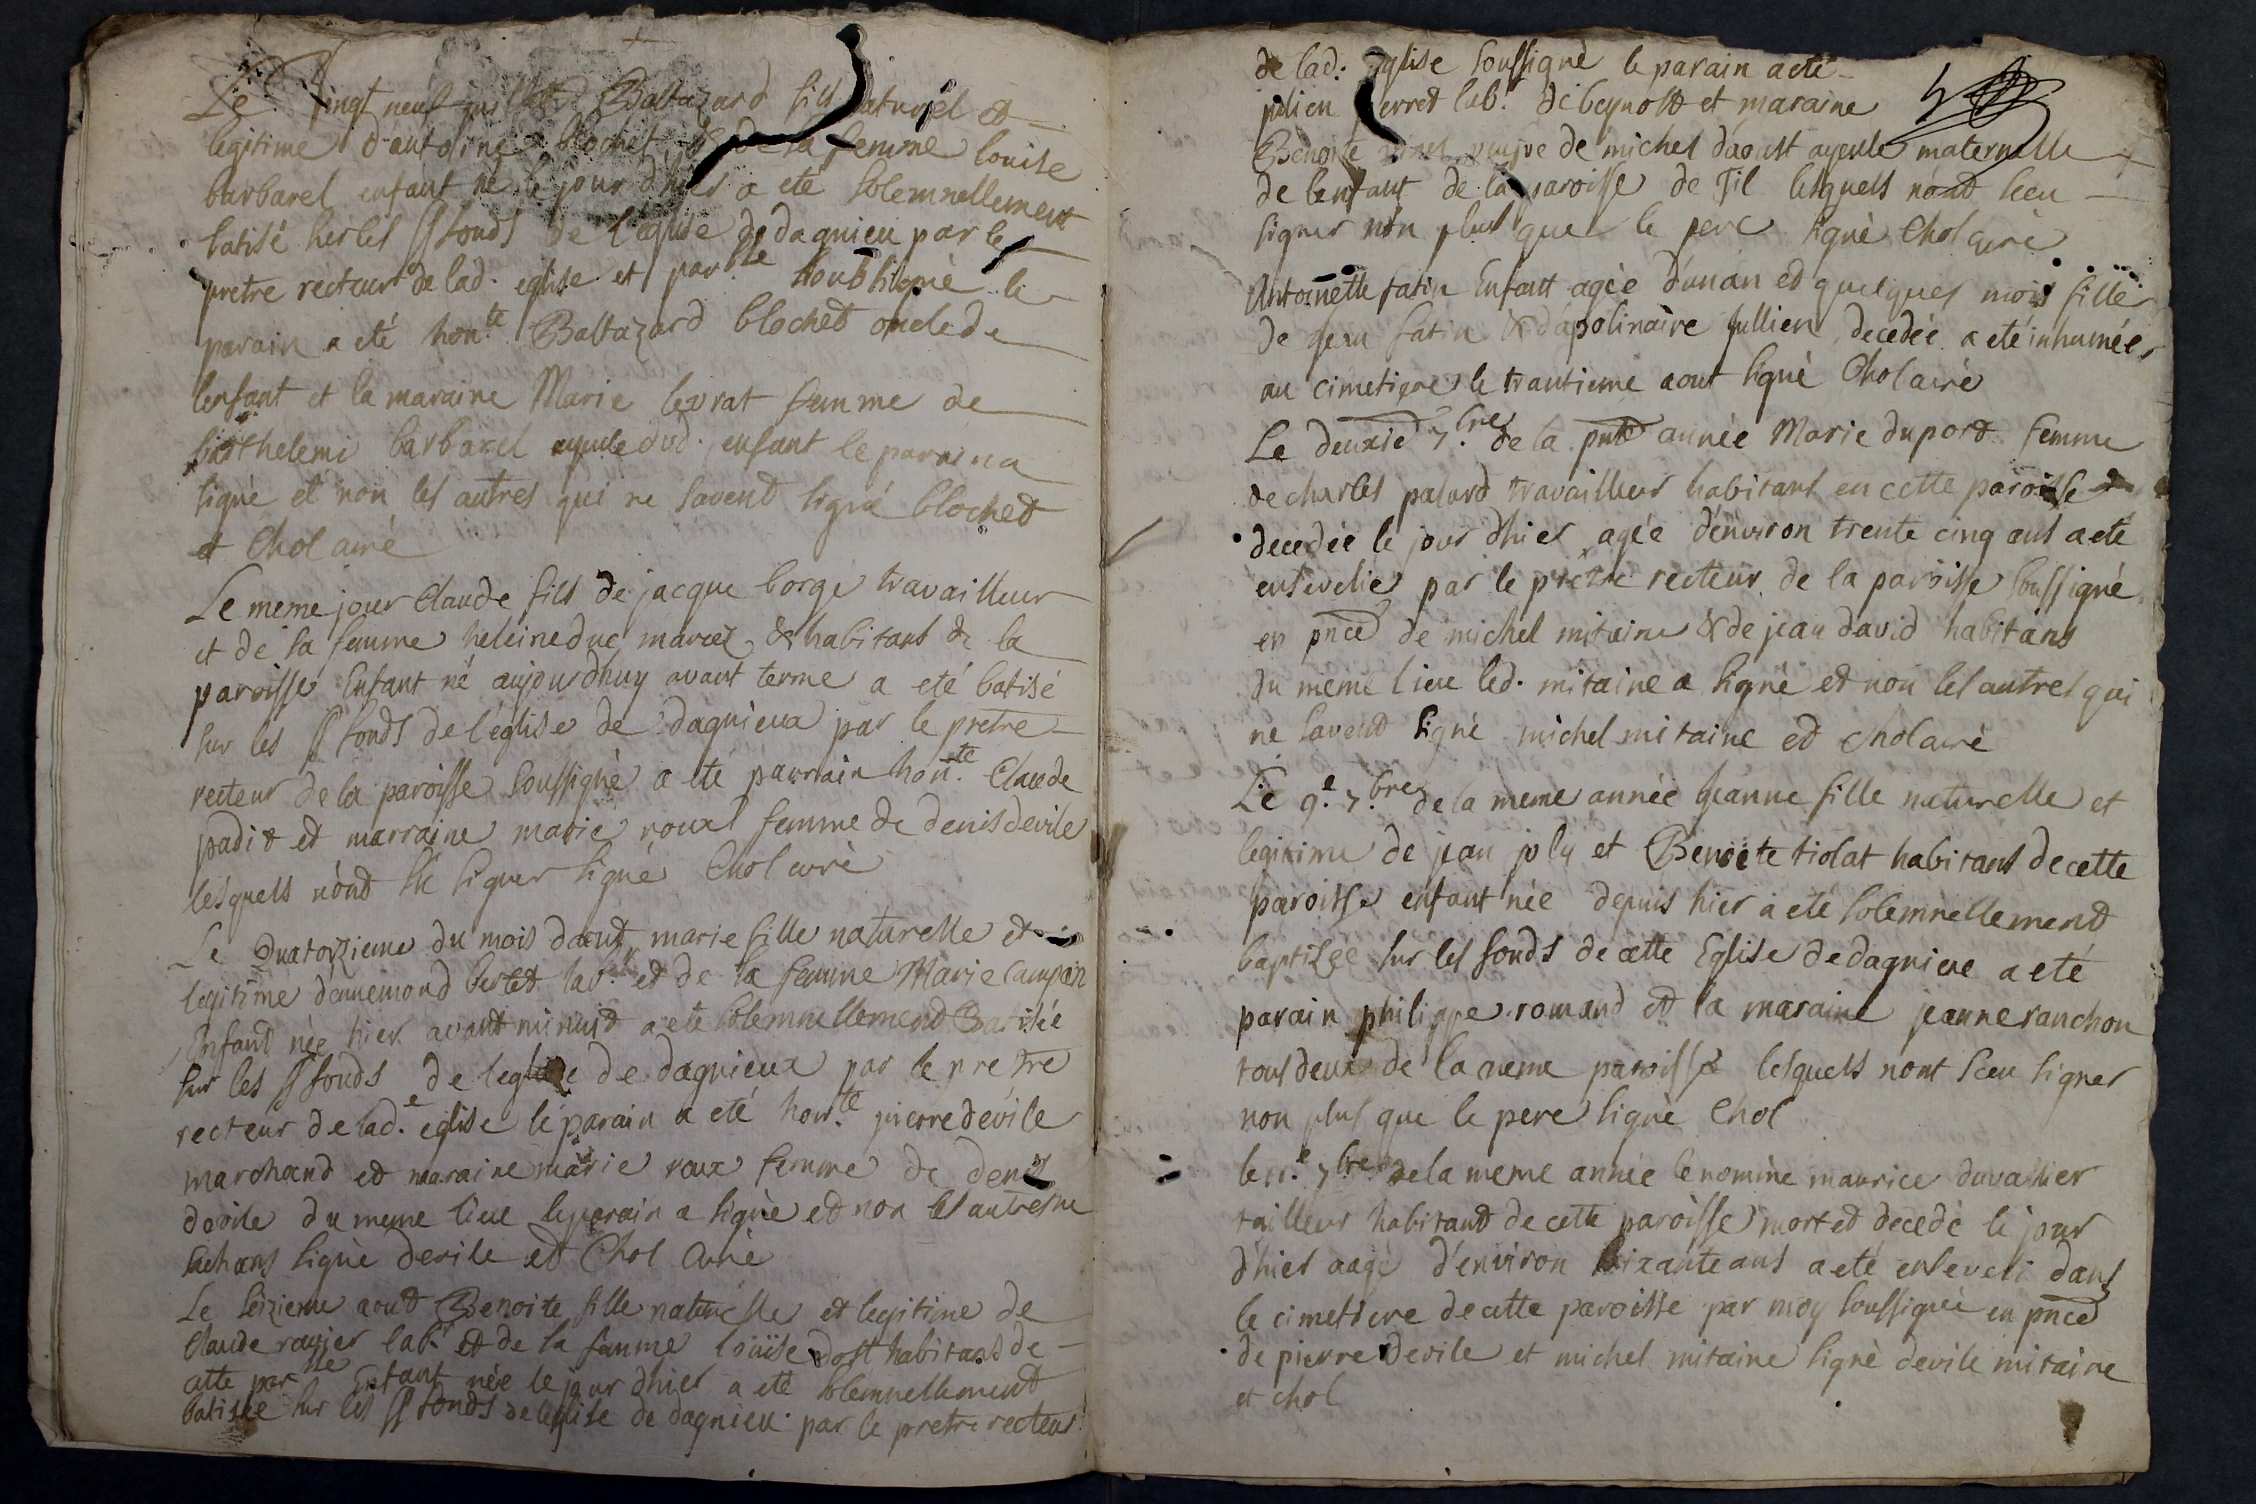 Le Vingt neuf juillet Baltazard fils naturel et
legitime d'antoine blochet & de sa femme louise
barbarel enfant né le jour d'hier a eté solemnellement
batisé sur les ss fonds de l'eglise de dagnieu par le
pretre recteur de lad. eglise et par.sse soubsigné le
parain a eté hon.te Baltazard blochet oncle de
lenfant et la maraine Marie levrat femme de
barthelemi barbarel ayeule dud. enfant le parain a
signé et non les autres qui ne savent signé blochet
et Chol curé
Le meme jour Claude fils de jacque borge travailleur
et de sa femme heleine duc mariez & habitans de la
paroisse Enfant né aujourdhuy avant terme a eté batisé
sur les ss fonds de l'eglise de dagnieux par le pretre
recteur de la paroisse soussigné a eté parrain hon.te Claude
padit et marraine marie roux femme de denis devile
lesquels n'ont sçu signer signé Chol curé
Le Quatorzieme du mois d'aout marie fille naturelle et
legitime dennemond berlet lab.r et de sa femme Marie campan
Enfant née hier avant minuit a eté solemnellement Batisée
sur les ss fonds de leglise de dagnieux par le pretre
recteur de lad.e eglise le parain a eté hon.te pierre devile
marchand et maraine marie roux femme de denis
devile du meme lieu le parain a signé et non les autres ne
sachans signé devile et Chol Curé
Le seizieme aout Benoite fille naturelle et legitime de
Claude rogier lab.r et de sa femme loüise dost habitans de
cette par.sse Enfant née le jour dhier a eté solemnellement
batisée sur les ss fonds de leglise de dagnieu par le pretre recteur
de lad. Eglise soussigné le parain a eté
julien perret lab.r de beynost et maraine
Benoite veuve de michel d'aoust ayeule maternelle
de lenfant de la paroisse de Til lesquels n'ont sceu
signer non plus que le pere signé Chol curé
Antoinette fatin Enfant agée d'un an et quelques mois fille
de jean fatin & d'apolinaire jullien decedée a eté inhumée
au cimetiere le trantieme aout signé Chol curé
Le deuxie 7.bre de la pnte année Marie duport femme
de charles palard travailleur habitant en cette paroisse
decedée le jour d'hier agée d'environ trente cinq ans a eté
ensevelie par le pretre recteur de la paroisse soussigné
en pnce de michel mitaine & de jean david habitans
du meme lieu led. mitaine a signé et non les autres qui
ne savent signé michel mitaine et chol curé
Le 9.e 7.bre de la meme année jeanne fille naturelle et
legitime de jean joly et Benoite tiolat habitans de cette
paroisse enfant née depuis hier a eté solemnellement
baptisée sur les fonds de cette Eglise de dagnieu a eté
parain philippe romand et la maraine jeanne ranchon
tous deux de la meme paroisse lesquels n'ont sceu signer
non plus que le pere signé Chol
le 11.e 7bre de la meme année le nommé maurice duvallier
tailleur habitant de cette paroisse mort et decedé le jour
d'hier aagé d'environ soixante ans a eté enseveli dans
le cimetiere de cette paroisse par moy soussigné en pnce
de pierre devile et michel mitaine signé devile mitaine
et chol